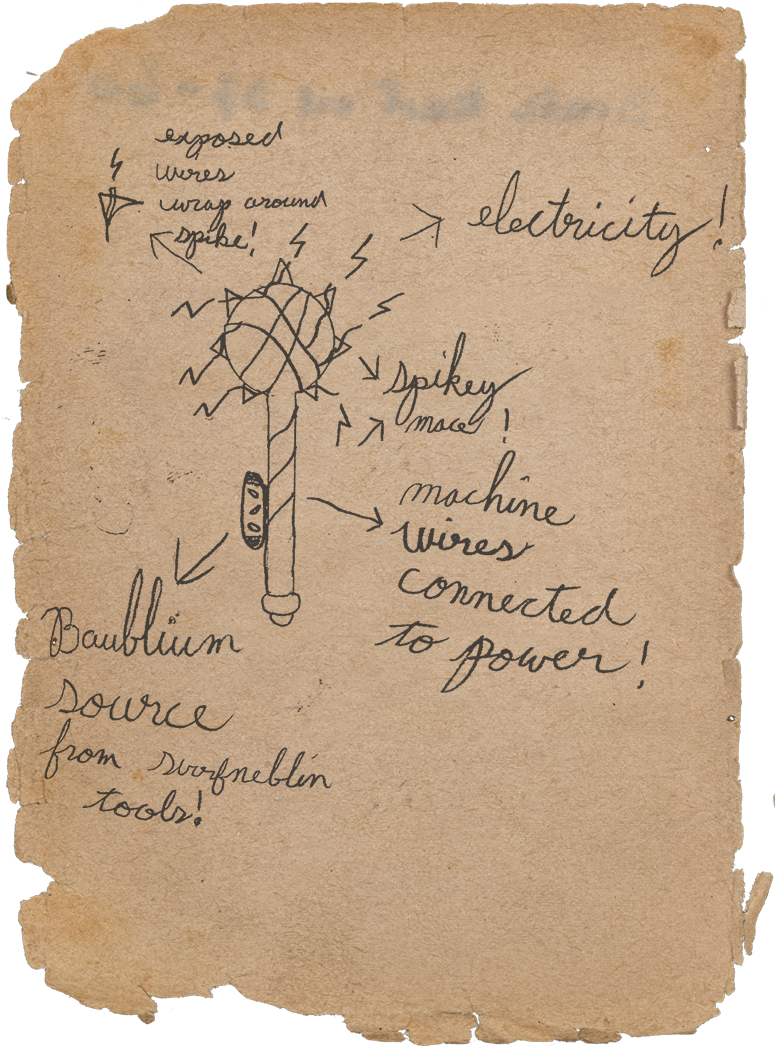 exposed
wires
wrap around
spike!
electricity!
spikey
mace!
machine
wires
connected
to power!
Baublium
source
from svirfneblin
tools!